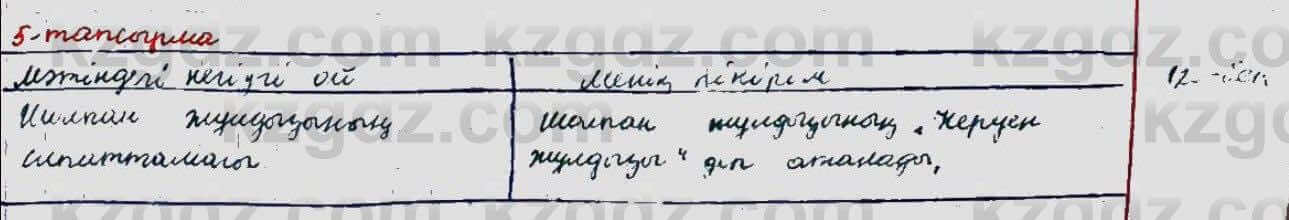 5-тапсырма
Мәтіндегі негізгі ой
Менің пікірім
Шолпан жұлдызының
сипаттамасы
Шолпан жұлдызының „Керуен
жұлдызы" деп аталады.
kzgdz.com